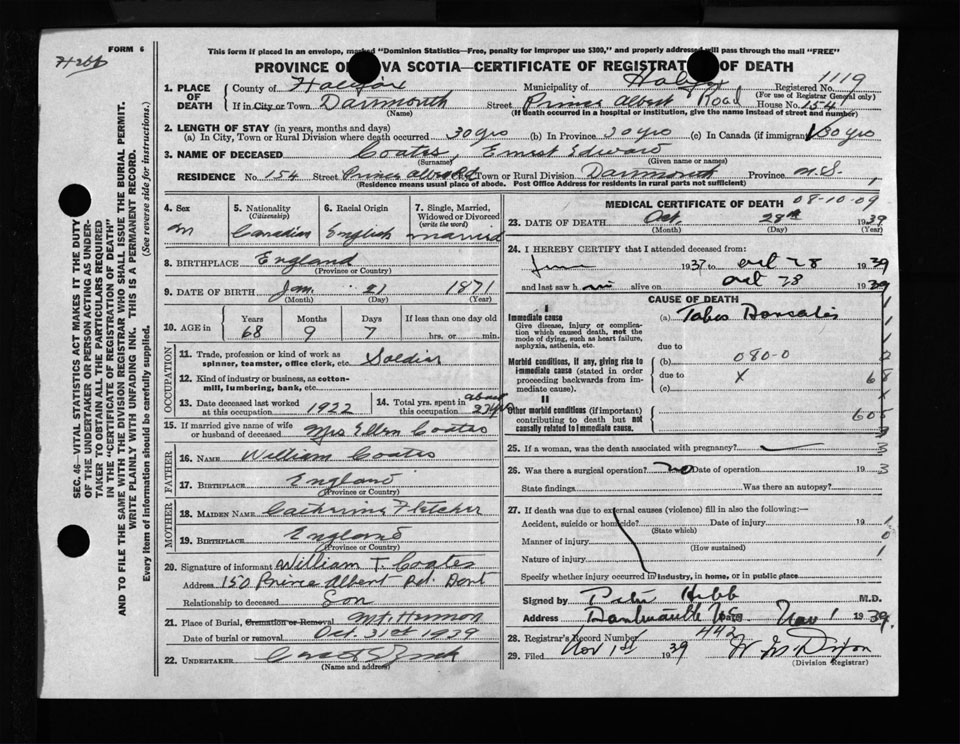 FORM 6
This form if placed in an envelope, marked "Dominion Statistics—Free, penalty for improper use $300," and properly addressed will pass through the mail "FREE"
PROVINCE OF NOVA SCOTIA—CERTIFICATE OF REGISTRATION OF DEATH
1119
1. PLACE OF DEATH County of Halifax Municipality of Halifax Registered No.
(For use of Registrar General only)
If in City or Town Dartmouth Street Prince Albert Road House No. 154
(Name) (If death occurred in a hospital or institution, give the name instead of street and number)
2. LENGTH OF STAY (in years, months and days)
(a) In City, Town or Rural Division where death occurred 30 yrs (b) In Province 30 yrs (c) In Canada (if immigrant) 30 yrs
3. NAME OF DECEASED Coates, Ernest Edward
(Surname) (Given name or names)
RESIDENCE No. 154 Street Prince Albert Rd City, Town or Rural Division Dartmouth Province N.S. 1
(Residence means usual place of abode. Post Office Address for residents in rural parts not sufficient)
SEC. 46—VITAL STATISTICS ACT MAKES IT THE DUTY
OF THE UNDERTAKER OR PERSON ACTING AS UNDER-
TAKER TO OBTAIN ALL THE PARTICULARS REQUIRED
IN THE "CERTIFICATE OF REGISTRATION OF DEATH"
AND TO FILE THE SAME WITH THE DIVISION REGISTRAR WHO SHALL ISSUE THE BURIAL PERMIT.
WRITE PLAINLY WITH UNFADING INK. THIS IS A PERMANENT RECORD.
Every item of information should be carefully supplied. (See reverse side for instructions.)
4. Sex
m
5. Nationality
(Citizenship)
Canadian
6. Racial Origin
English
7. Single, Married,
Widowed or Divorced
(write the word)
married
8. BIRTHPLACE England
(Province or Country)
9. DATE OF BIRTH Jan. 21 1871
(Month) (Day) (Year)
10. AGE in Years Months Days If less than one day
68 9 7 hrs. or min.
OCCUPATION
11. Trade, profession or kind of work as
spinner, teamster, office clerk, etc. Soldier
12. Kind of industry or business, as cotton-
mill, lumbering, bank, etc.
13. Date deceased last worked
at this occupation 1922
14. Total yrs. spent in
this occupation about
15. If married give name of wife
or husband of deceased Mrs Ellen Coates
FATHER
16. Name William Coates
17. Birthplace England
(Province or Country)
MOTHER
18. Maiden Name Catherine Fletcher
19. Birthplace England
(Province or Country)
20. Signature of informant William T. Coates
Address 150 Prince Albert Rd. Dart
Relationship to deceased Son
21. Place of Burial, Cremation or Removal Mt. Hermon
Date of burial or removal Oct. 31st 1939
22. UNDERTAKER
(Name and address)
MEDICAL CERTIFICATE OF DEATH 08-10-09
23. DATE OF DEATH Oct. 28th 1939
(Month) (Day) (Year)
24. I HEREBY CERTIFY that I attended deceased from:
June 1937 to Oct 28 1939
and last saw him alive on Oct 28 1939
CAUSE OF DEATH
I
Immediate cause
Give disease, injury or complica-
tion which caused death, not the
mode of dying, such as heart failure,
asphyxia, asthenia, etc.
(a) Tabes Dorsalis
due to
Morbid conditions, if any, giving rise to
immediate cause (stated in order
proceeding backwards from im-
mediate cause).
(b) 080-0
due to X
(c)
68
II
Other morbid conditions (if important)
contributing to death but not
causally related to immediate cause.
605
25. If a woman, was the death associated with pregnancy? 3
26. Was there a surgical operation? No Date of operation 19 3
State findings Was there an autopsy?
27. If death was due to external causes (violence) fill in also the following:—
Accident, suicide or homicide? Date of injury 19 1
(State which)
Manner of injury 0
(How sustained)
Nature of injury 1
Specify whether injury occurred in industry, in home, or in public place
Signed by Hebb M.D.
Address Dartmouth NS Nov 1 1939.
28. Registrar's Record Number 442
29. Filed Nov 1st 1939
(Division Registrar)